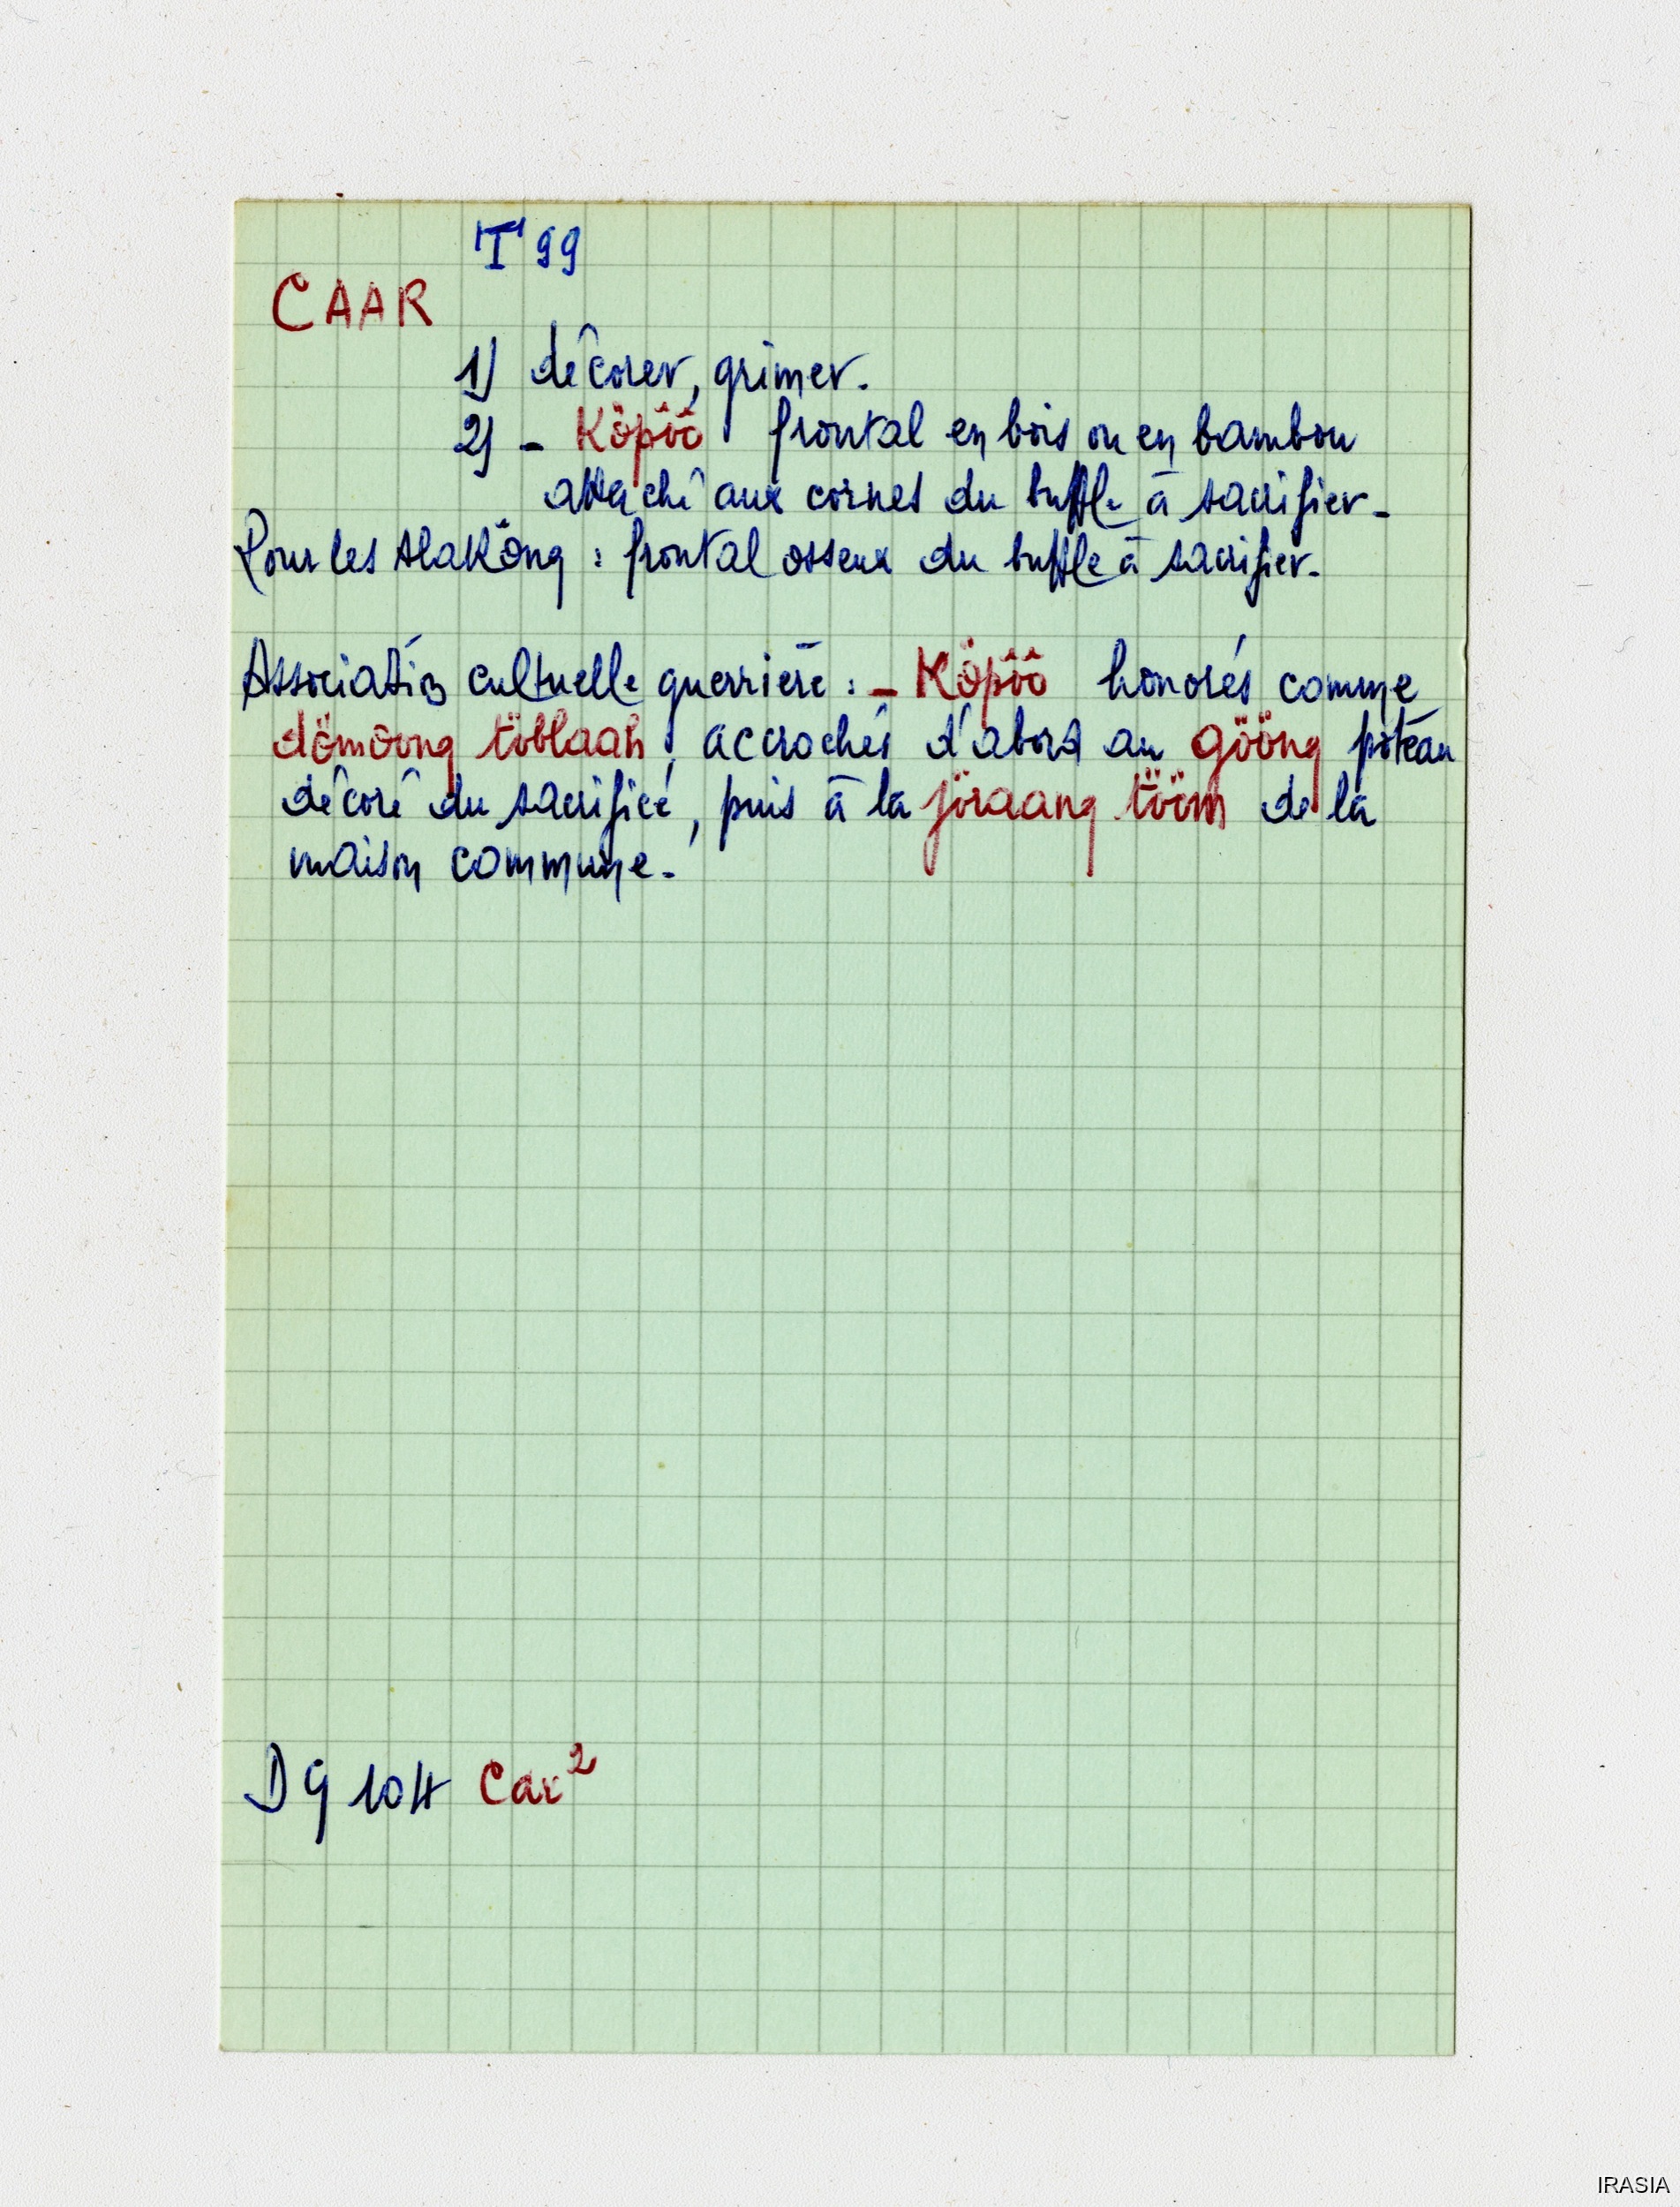 T 99
CAAR
1) décorer, grimer.
2) - Köpôô frontal en bois ou en bambou
attaché aux cornes du buffle à sacrifier -
Pour les HaKöng : frontal osseux du buffle à sacrifier.
Association cultuelle guerrière : - Köpôô honorés comme
dömoong töblaah, accrochés d'abord au gööng poteau
décoré du sacrifice, puis à la jöraang tööm de la
maison commune.
DG 104 Car²
IRASIA